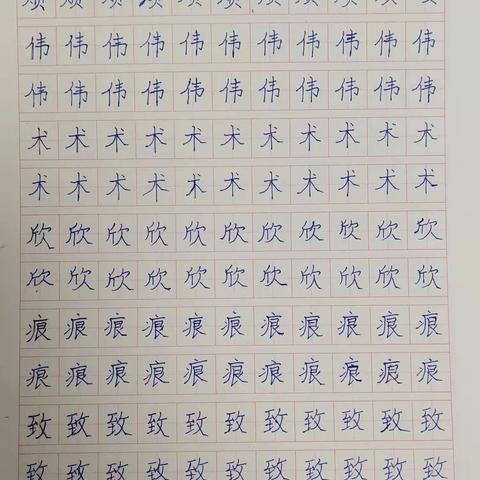 伟伟伟伟伟伟伟伟伟伟伟
伟伟伟伟伟伟伟伟伟伟伟
术术术术术术术术术术术
术术术术术术术术术术术
欣欣欣欣欣欣欣欣欣欣欣
欣欣欣欣欣欣欣欣欣欣欣
痕痕痕痕痕痕痕痕痕痕痕
痕痕痕痕痕痕痕痕痕痕痕
致致致致致致致致致致致
致致致致致致致致致致致